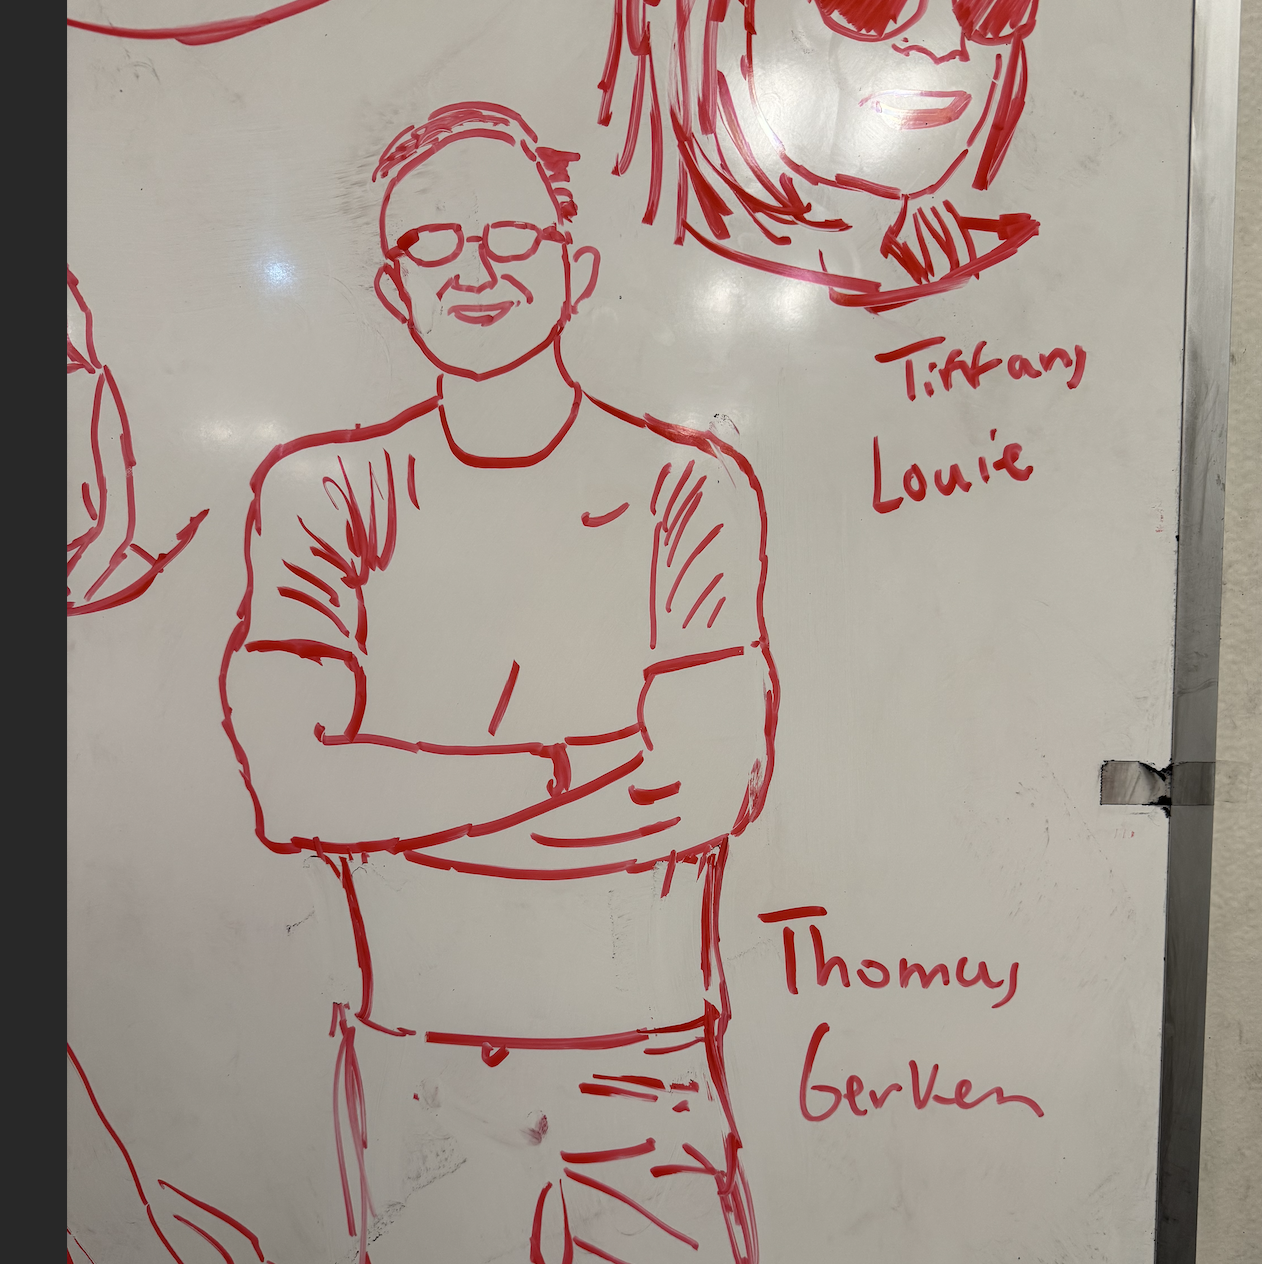 Tiffany
Louie
Thomas
Gerken